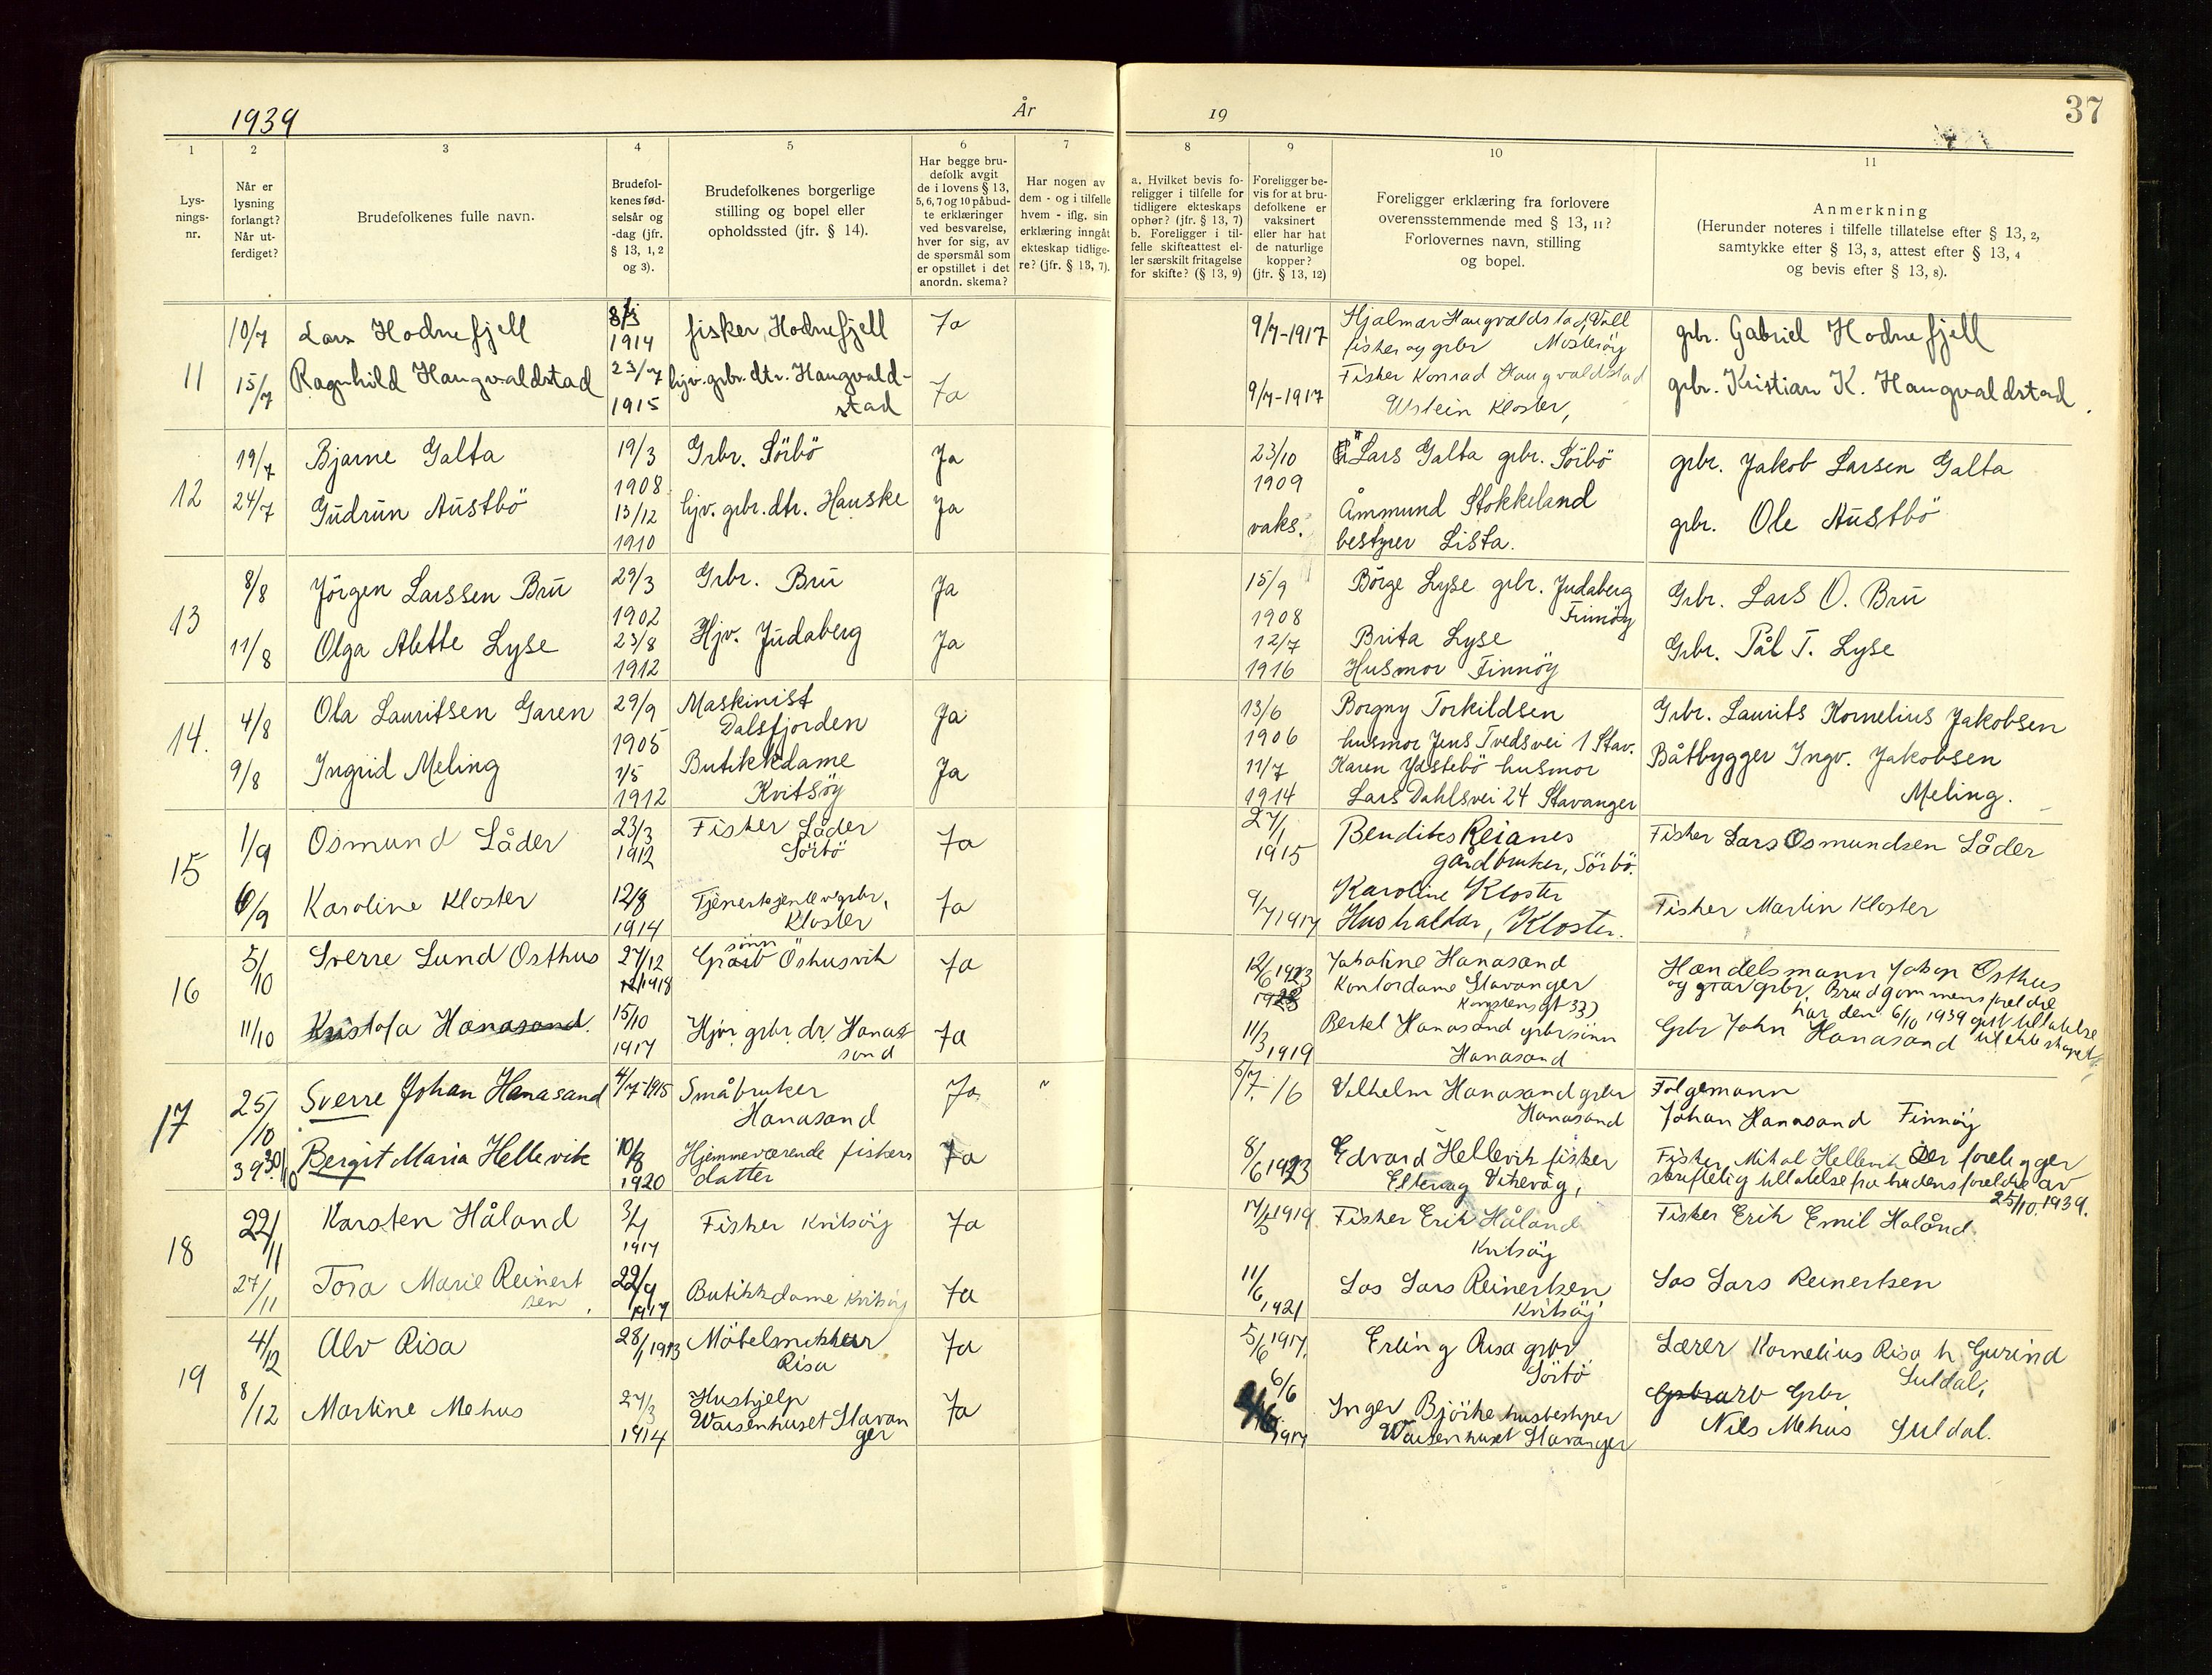 1939
År
19
37
1
2
3
4
5
6
7
8
9
10
11
Lys-
nings-
nr.
Når er
lysning
forlangt?
Når ut-
ferdiget?
Brudefolkenes fulle navn.
Brudefol-
kenes fød-
selsår og
-dag (jfr.
§ 13, 1, 2
og 3).
Brudefolkenes borgerlige
stilling og bopel eller
opholdssted (jfr. § 14).
Har begge bru-
defolk avgit
de i lovens § 13,
5, 6, 7 og 10 påbud-
te erklæringer
ved besvarelse,
hver for sig, av
de spørsmål som
er opstillet i det
anordn. skema?
Har nogen av
dem - og i tilfelle
hvem - iflg. sin
erklæring inngåt
ekteskap tidlige-
re? (jfr. § 13, 7).
a. Hvilket bevis fo-
religger i tilfelle for
tidligere ekteskaps
ophør? (jfr. § 13, 7)
b. Foreligger i til-
felle skifteattest el-
ler særskilt fritagelse
for skifte? (§ 13, 9)
Foreligger be-
vis for at bru-
defolkene er
vaksinert
eller har hat
de naturlige
kopper?
(jfr. § 13, 12)
Foreligger erklæring fra forlovere
overensstemmende med § 13, 11?
Forlovernes navn, stilling
og bopel.
Anmerkning
(Herunder noteres i tilfelle tillatelse efter § 13, 2,
samtykke efter § 13, 3, attest efter § 13, 4
og bevis efter § 13, 8).
11
10/7 Lars Hodnefjell 8/3 1914 fisker, Hodnefjell Ja 9/7-1917 Hjalmar Haugvaldstad, Vall
fisker og grbr Mosterøy grbr. Gabriel Hodnefjell
15/7 Ragnhild Haugvaldstad 23/7 1915 hjv. grbr. dtr. Haugvald-
stad Ja 9/7-1917 Fisker Konrad Haugvaldstad
Utstein Kloster, grbr. Kristian K. Haugvaldstad.
12
19/7 Bjarne Galta 19/3 1908 Grbr. Sörbö Ja 23/10 1909 Lars Galta grbr. Sörbö grbr. Jakob Larsen Galta
24/7 Gudrun Austbö 13/12 1910 hjv. grbr. dtr. Hauske Ja vaks. Åmmund Stokkeland
bestyrer Lista. grbr. Ole Austbö
13
8/8 Jörgen Larssen Bru 29/3 1902 Grbr. Bru Ja 15/9 1908 Börge Lyse grbr. Judaberg
Finnöy Grbr. Lars O. Bru
11/8 Olga Alette Lyse 23/8 1912 Hjv. Judaberg Ja 12/7 1916 Brita Lyse
Husmor Finnöy Grbr. Pål T. Lyse
14.
4/8 Ola Lauritsen Garen 29/9 1905 Maskinist
Dalsfjorden Ja 13/6 1906 Borgny Torkildsen
husmor Jens Tvedsvei 1 Stav. Grbr. Laurits Kornelius Jakobsen
9/8 Ingrid Meling 1/5 1912 Butikkdame
Kvitsöy Ja 11/7 1914 Karen Ydstebö husmor
Lars Dahlsvei 24 Stavanger Båtbygger Ingv. Jakobsen
Meling.
15
1/9 Osmund Låder 23/3 1912 Fisker Låder
Sörbö Ja 27/1 1915 Bendikts Reianes
gårdbruker, Sörbö. Fisker Lars Osmundsen Låder
6/9 Karoline Kloster 12/8 1914 Tjenestejente v grbr,
Kloster Ja 9/7 1917 Karoline Kloster
Hushaldar, Kloster. Fisker Martin Kloster
16
5/10 Sverre Lund Osthus 27/12 1918 sönn Öshusvik Ja 12/6 1923 Jakobine Hanasand
Kontordame Stavanger
Kongstensgt 33) Handelsmann Johan Osthus
og grbr. Brudgommens foreldre
har den 6/10 1939 gitt tillatelse
til ekteskapet
11/10 Kristofa Hanasand. 15/10 1917 Hjv. grbr. dr. Hanas-
sand Ja 11/3 1919 Bertel Hanasand grbrsönn
Hanasand Grbr John Hanasand
17
25/10 Sverre Johan Hanasand 4/7-1915 Småbruker
Hanasand Ja 5/7. 16 Vilhelm Hanasand grbr
Hanasand Folgemann
Johan Hanasand Finnöy
39 30/10 Bergit Maria Hellevik 10/8 1920 Hjemmeværende fiskers
datter Ja 8/6 1923 Edvard Hellevik fisker
Vikevåg, Fisker Mikal Hellevik Der foreligger
skriftelig tillatelse fra brudens foreldre av
25/10. 1939.
18
22/11 Karsten Håland 3/1 1917 Fisker Kvitsöy Ja 17/5 1919 Fisker Erik Håland
Kvitsöy Fisker Erik Emil Håland
27/11 Tora Marie Reinert
sen 22/9 1917 Butikkdame Kvitsöy Ja 11/6 1921 Los Lars Reinertsen
Kvitsöy Los Lars Reinertsen
19
4/12 Alv Risa 28/1 1913 Möbelsnekker
Risa Ja 5/6 1917. Erling Risa grbr
Sörbö Lærer Kornelius Risa h Gurind
Suldal,
8/12 Martine Mehus 27/3 1914 Hushjelp
Waisenhuset Stavan
ger Ja 6/6 1917 Inger Björke husbestyrer
Waisenhuset Stavanger Grbr.
Nils Mehus Suldal.